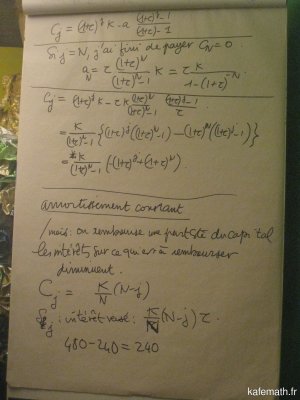 C_j = (1+τ)^j K - a ((1+τ)^j - 1)/((1+τ) - 1)
Si j = N, j'ai fini de payer C_N = 0.
a_N = τ (1+τ)^N/((1+τ)^N - 1) K = τK/(1-(1+τ)^-N)
C_j = (1+τ)^j K - τK (1+τ)^N/((1+τ)^N - 1) ((1+τ)^j - 1)/τ
= K/((1+τ)^N - 1) {(1+τ)^j ((1+τ)^N - 1) - (1+τ)^N ((1+τ)^j - 1)}
= K/((1+τ)^N - 1) (-(1+τ)^j + (1+τ)^N)
amortissement constant
/mois: on rembourse une part du capital
les intérêts sur ce qui est à rembourser
diminuent.
C_j = K/N (N-j)
intérêt versé: K/N (N-j) τ.
480-240 = 240
kafemath.fr